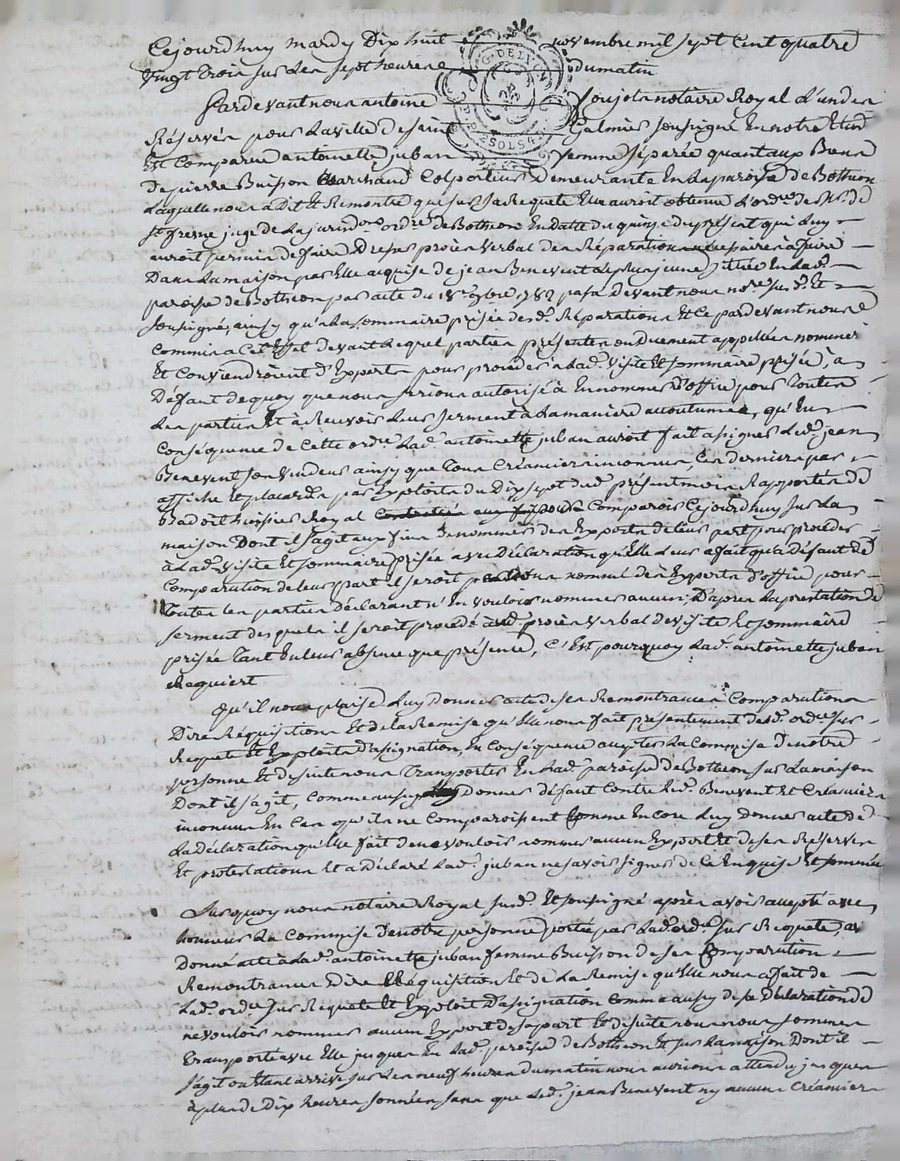 Cejourdhuy mardy Dix huit novembre mil sept Cent quatre
vingt trois sur les sept heures du matin
G. DE LYON
SOLS
Pardevant nous antoine Soujols notaire Royal L'un des
Réservés pour la ville de saint Galmier soussigné En notre Etude
Est Comparüe antoinette juban femme séparée quant aux Biens
de pierre Buisson Marchand Colporteur Demeurante En la paroisse de Botheon
Laquelle nous a Dit Et Remontré que sur sa Requete Elle auroit obtenu L'ordce de Mr. De
St. juge de La jurindon. ordre. de Botheon En datte du quinze du présent qui Luy
auroit permis de faire Dresser procès verbal des Réparations a faire
Dans La maison par Elle acquise de jean Benevent Le plus jeune, située En lade.
paroisse de Botheon par acte du 18e. 9bre 1782 passé devant nous nore. susd. Et
soussigné, ainsy qu'a la sommaire prisée desd. Réparations Et ce pardevant nous
Commis a Cet Effet devant Lequel parties présentes ou duement appellées nommeroient
Et Conviendroient d'Experts pour procéder a lad. visite Et sommaire prisée, a
Défaut de quoy que nous serions autorisé à En nommer d'office pour toutes
Les parties Et à Recevoir Leur serment à la maniere accoutumée, qu'En
Conséquence de Cette ordce. Lade. antoinette juban auroit fait assigner Led. jean
Benevent son vendeur ainsy que tous Créanciers inconnus, Ces derniers par
affiche Et placards par Exploits du Dix sept dud. présent mois Rapportés de
Badoit huissier Royal a Comparoir Cejourdhuy sur La
maison Dont il s'agit aux fins de nommer des Experts de leur part pour procéder
à Lad. visite Et sommaire prisée avec Déclaration qu'Elle Leur a fait qu'a défaut de
Comparution de leur part il seroit par nous nommé des Experts d'office pour
toutes les parties déclarant n'En vouloir nommer aucun, D'après La prestation de
serment desquels il seroit procédé aud. procès verbal de visite Et sommaire
prisée tant En leur absence que présence, C'Est pourquoy Lad. antoinette juban
Requiert
Qu'il nous plaise Luy Donner acte de ses Remontrances Comparution
Dire Réquisition Et de la Remise qu'Elle nous fait présentement desd. ordce. sur
Requete Et Exploits D'assignation, En Conséquence accepter La Commise De notre
personne Et de suite nous Transporter En Lad. paroisse de Botheon sur La maison
Dont il s'agit, Comme aussy Donner défaut Contre Led. Benevent Et Créanciers
inconnus En Cas qu'ils ne Comparoissent Comme Encore Luy Donner acte de
La déclaration qu'Elle fait de ne vouloir nommer aucun Expert Et de ses Réserves
Et protestations Et a Déclaré Lad. juban ne savoir signer de Ce Enquise Et sommée
Sur quoy nous notaire Royal susd. Et soussigné après avoir accepté avec
honneur La Commise de notre personne portée par Lad. ordce. sur Requete, avons
Donné acte à Lad. antoinette juban femme Buisson de ses Comparution
Remontrances Dire Réquisition Et de La Remise qu'Elle nous a fait de
Lad. ordce. sur Requete Et Exploit D'assignation Comme aussy de sa Déclaration de
ne vouloir nommer aucun Expert de sa part Et de suite nous nous sommes
transporté avec Elle jusques En Lad. paroisse de Botheon Et sur La maison Dont il
s'agit ou Etant arrivé sur Les neuf heures du matin nous aurions attendu jusques
à plus de Dix heures sonnées sans que Led. jean Benevent ny aucuns Créanciers